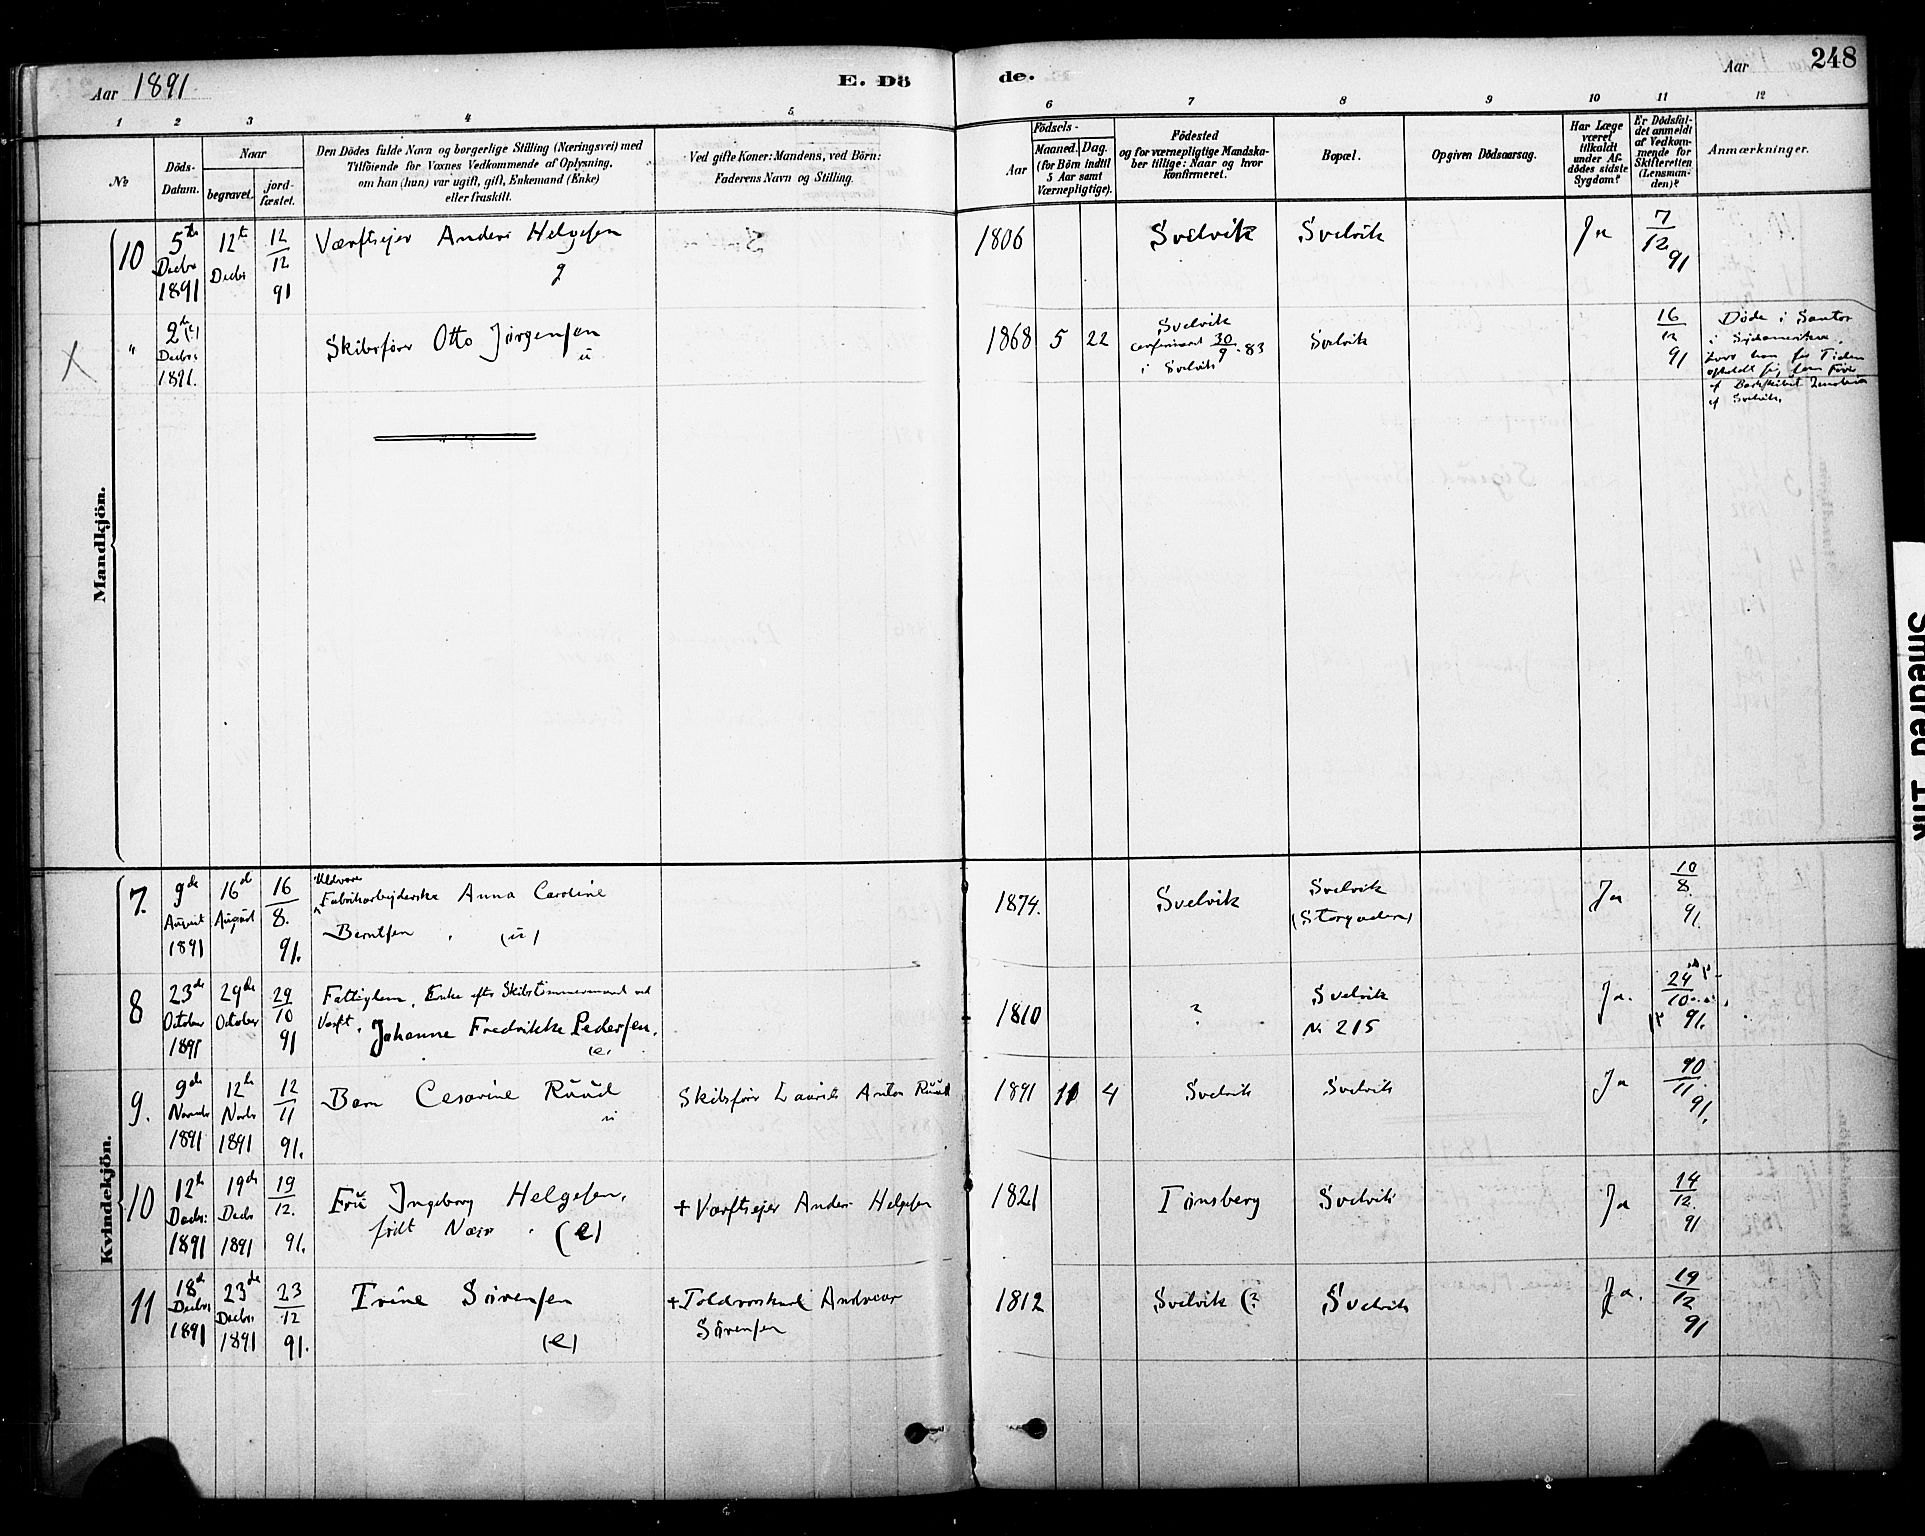 Aar 1891
E. Dö
de.
Aar
248
1 2 3 4 5 6 7 8 9 10 11 12
№
Döds-
Datum.
Naar
begravet.
jord-
fæstet.
Den Dödes fulde Navn og borgerlige Stilling (Næringsvei) med
Tilföiende for Voxnes Vedkommende af Oplysning.
om han (hun) var ugift, gift, Enkemand (Enke)
eller fraskilt.
Ved gifte Koner: Mandens, ved Börn:
Faderens Navn og Stilling.
Födsels-
Aar
Maaned. Dag.
(for Börn indtil
5 Aar samt
Værnepligtige).
Födested
og for værnepligtige Mandska-
ber tillige: Naar og hvor
konfirmeret.
Bopæl.
Opgiven Dödsaarsag.
Har Læge
været
tilkaldt
under Af-
dödes sidste
Sygdom?
Er Dödsfal-
det anmeldt
af Vedkom-
mende for
Skifteretten
(Lensman-
den)?
Anmærkninger.
Mandkjön.
10
5te
Decbr
1891
12te
Decbr
12
12
91
Værftsejer Anders Helgesen
g
1806
Svelvik
Svelvik
Ja
7
12
91
X
"
2de
Decbr
1891.
Skibsfører Otto Jørgensen
ü
1868 5 22
Svelvik
confirmeret 30/9 83
i Svelvik
Svelvik
16
12
91
Døde i Santos
i Sydamerika,
hvor han for Tiden
opholdt sig som Fører
af Barkskibet
af Svelvik.
Kvindekjön.
7.
9de
August
1891
16de
August
16
8.
91.
Uldvare
Fabrikarbejderske Anna Caroline
Berntsen (ü)
1874.
Svelvik
Svelvik
(Storgaden)
Ja
10
8.
91.
8
23de
October
1891
29de
October
29
10
91
Fattiglem, Enke efter Skibstømmermand ved
Værft, Johanne Fredrikke Pedersen.
(e)
1810
?
Svelvik
N. 215
Ja.
24
10
91.
9.
9de
Novmbr
1891
12te
Novbr
1891
12
11
91.
Barn Cesarine Ruud
ü
Skibsfører Laurits Anton Ruud
1891 11 4
Svelvik
Svelvik
Ja
10
11
91.
10
12te
Decbr.
1891
19de
Decbr
1891
19
12.
91.
Fru Ingeborg Helgesen,
født Nærø. (e)
+ Værftsejer Anders Helgesen
1821
Tønsberg
Svelvik
Ja
14
12.
91
11
18de
Decbr
1891
23de
Decbr.
1891
23
12
91.
Trine Sörensen
(e)
+ Toldroskarl Andreas
Sörensen
1812
Svelvik (?
Svelvik
Ja.
19
12
91
Smeared Ink